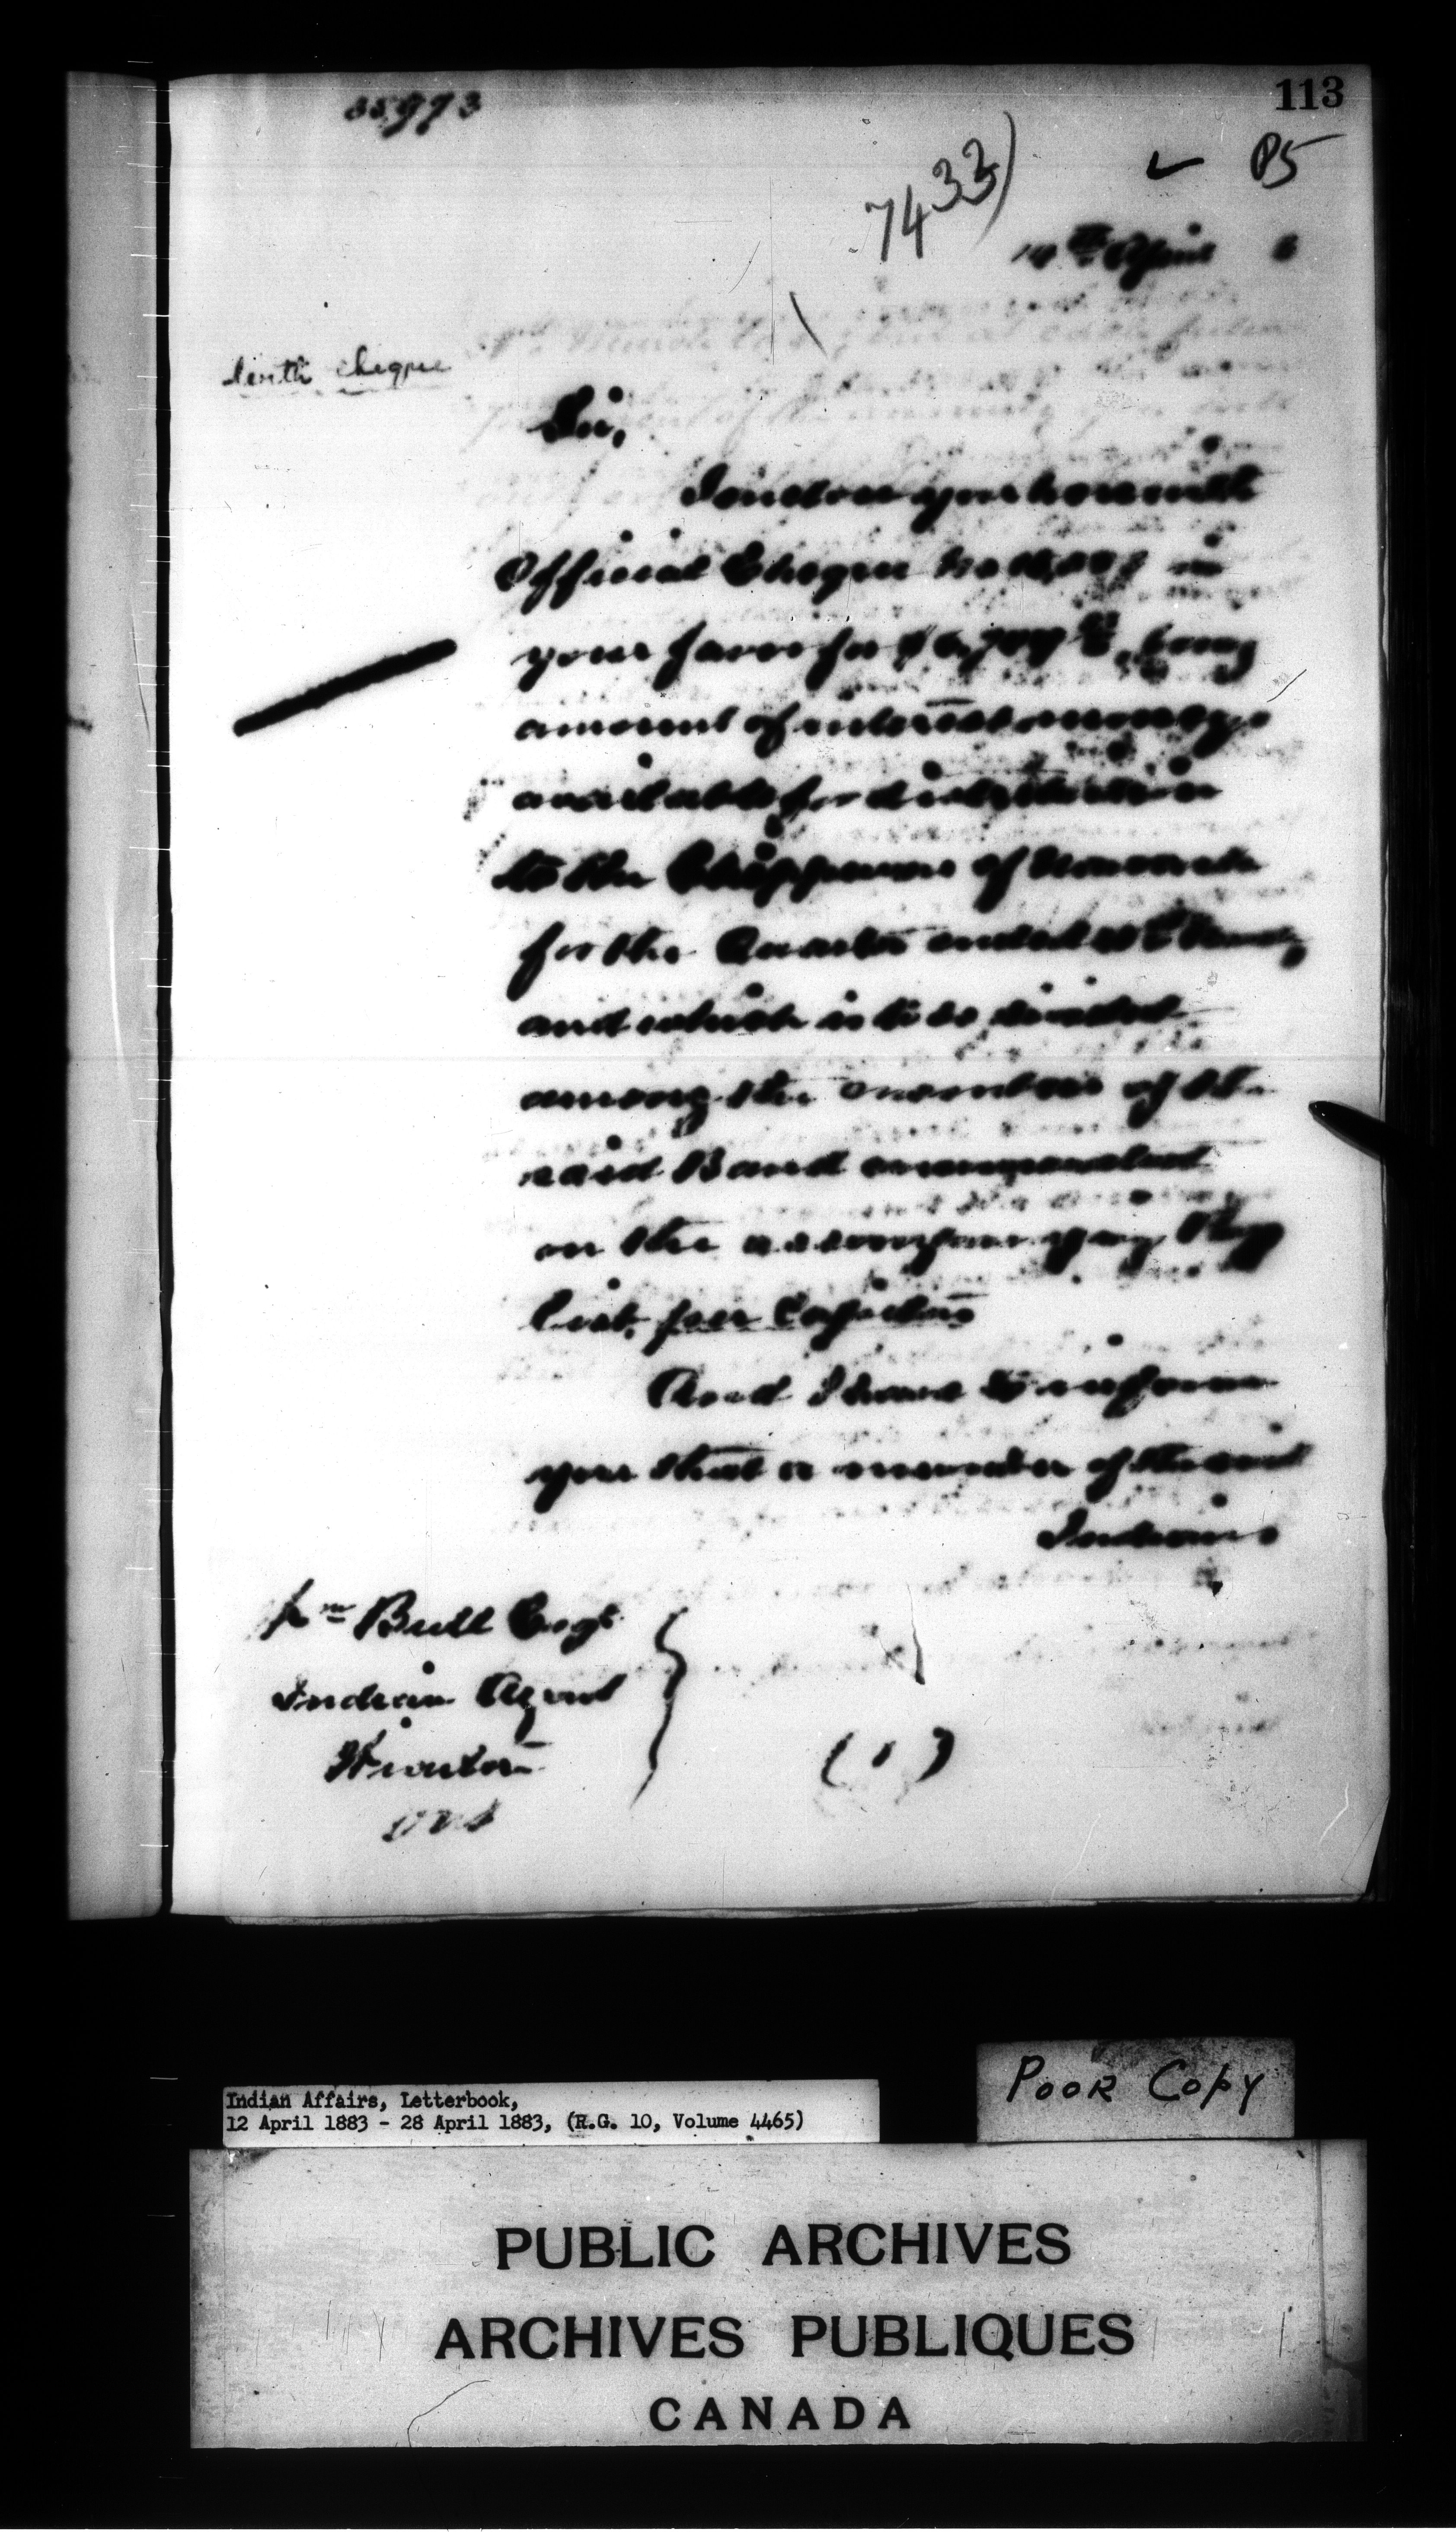 113
85
7433)
14th April
With cheque
Sir,
I enclose you herewith
Official Cheque No in
your favor for $ being
amount of interest moneys
available for distribution
to the Chippewas of
for the Quarter ended
and which is to be divided
among the members of the
said Band enumerated
on the accompanying Pay
list, per Capita
And I have to inform
you that a number of the said
Indians
Wm Bull Esqr
Indian Agent
Wiarton
Ont
(1)
Indian Affairs, Letterbook,
12 April 1883 - 28 April 1883, (R.G. 10, Volume 4465)
POOR COPY
PUBLIC ARCHIVES
ARCHIVES PUBLIQUES
CANADA